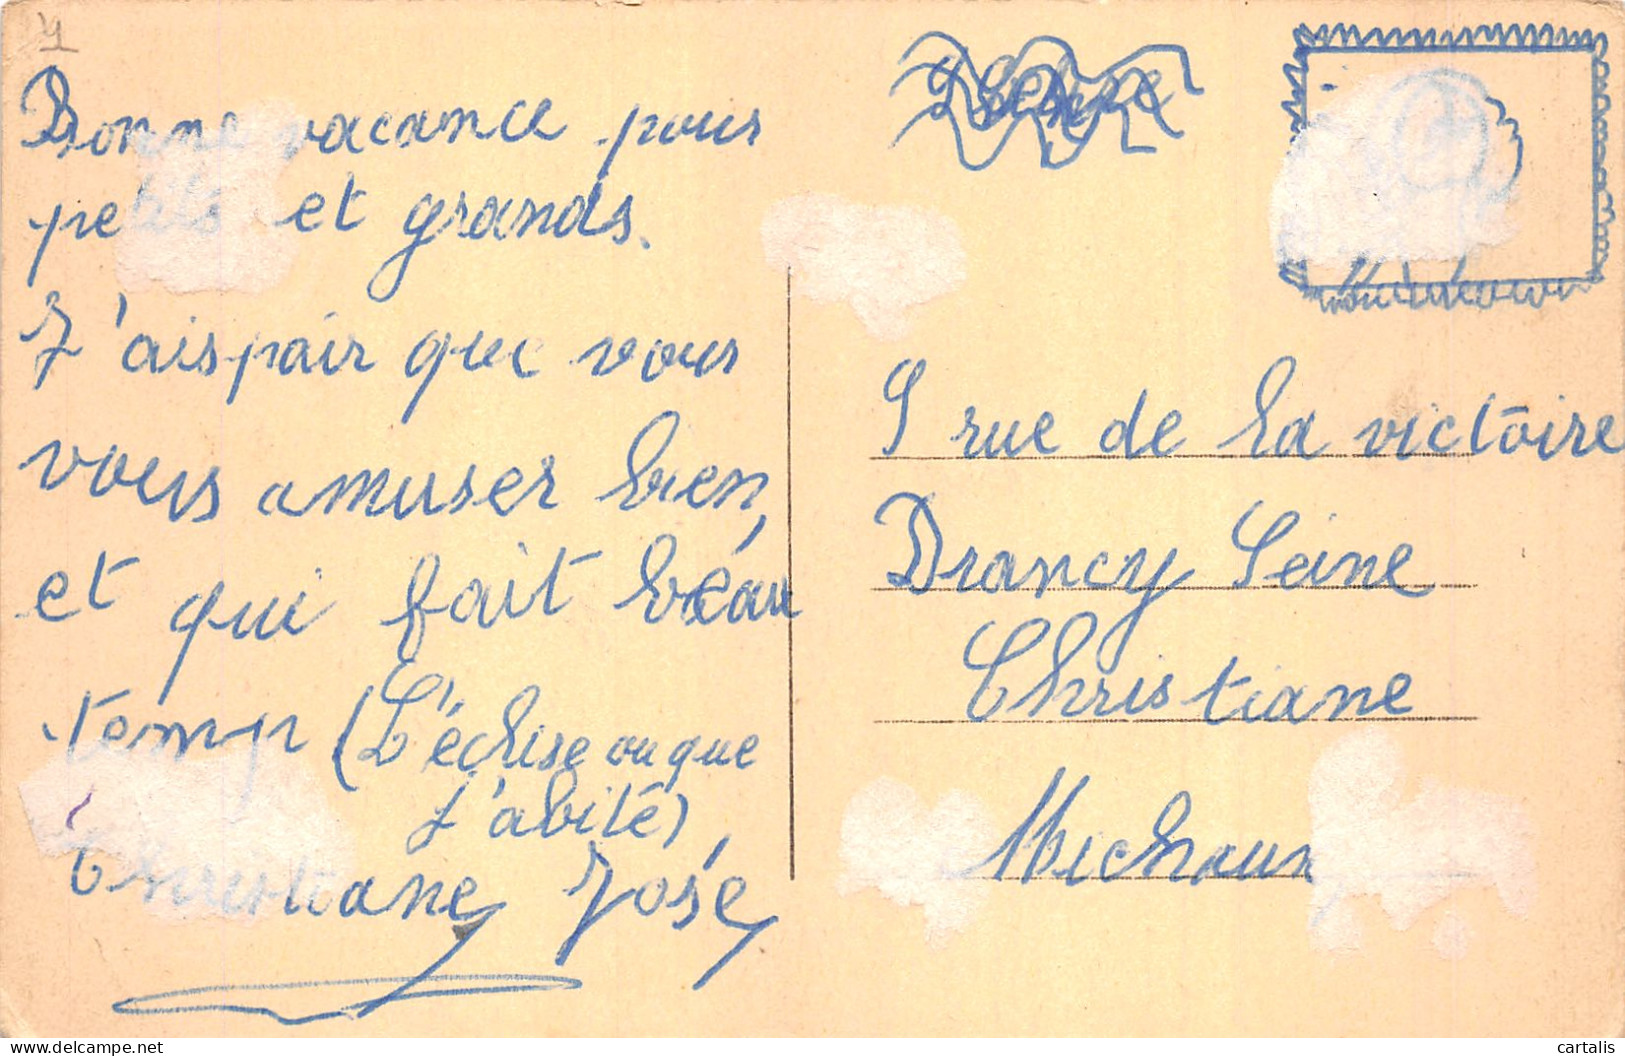 Bonne vacance pour
petits et grands.
J'aispair que vous
vous amuser bien,
et qui fait béau
temp (L'échise ou que
J'abité)
Christiane José
9 rue de la victoire
Drancy Seine
Christiane
Michaun
cartalis